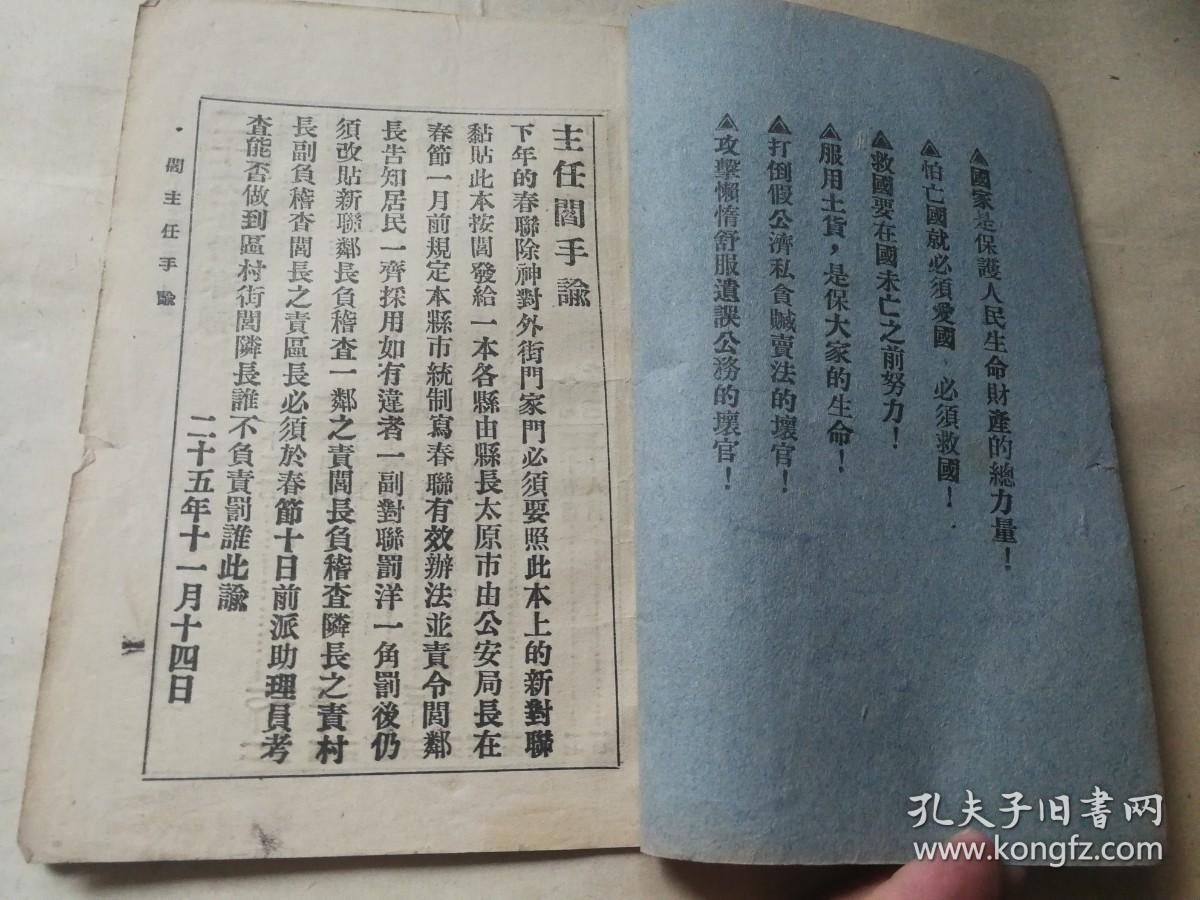 ▲國家是保護人民生命財產的總力量!
▲怕亡國就必須愛國、必須救國!
▲救國要在國未亡之前努力!
▲服用土貨,是保大家的生命!
▲打倒假公濟私貪贓賣法的壞官!
▲攻擊懶惰舒服遺誤公務的壞官!
主任閻手諭
下年的春聯除神對外街門家門必須要照此本上的新對聯
黏貼此本按閭發給一本各縣由縣長太原市由公安局長在
春節一月前規定本縣市統制寫春聯有效辦法並責令閭鄰
長告知居民一齊採用如有違者一副對聯罰洋一角罰後仍
須改貼新聯鄰長負稽查一鄰之責閭長負稽查隣長之責村
長副負稽查閭長之責區長必須於春節十日前派助理員考
查能否做到區村街閭隣長誰不負責罰誰此諭
二十五年十一月十四日
閻主任手諭
孔夫子旧书网
www.kongfz.com